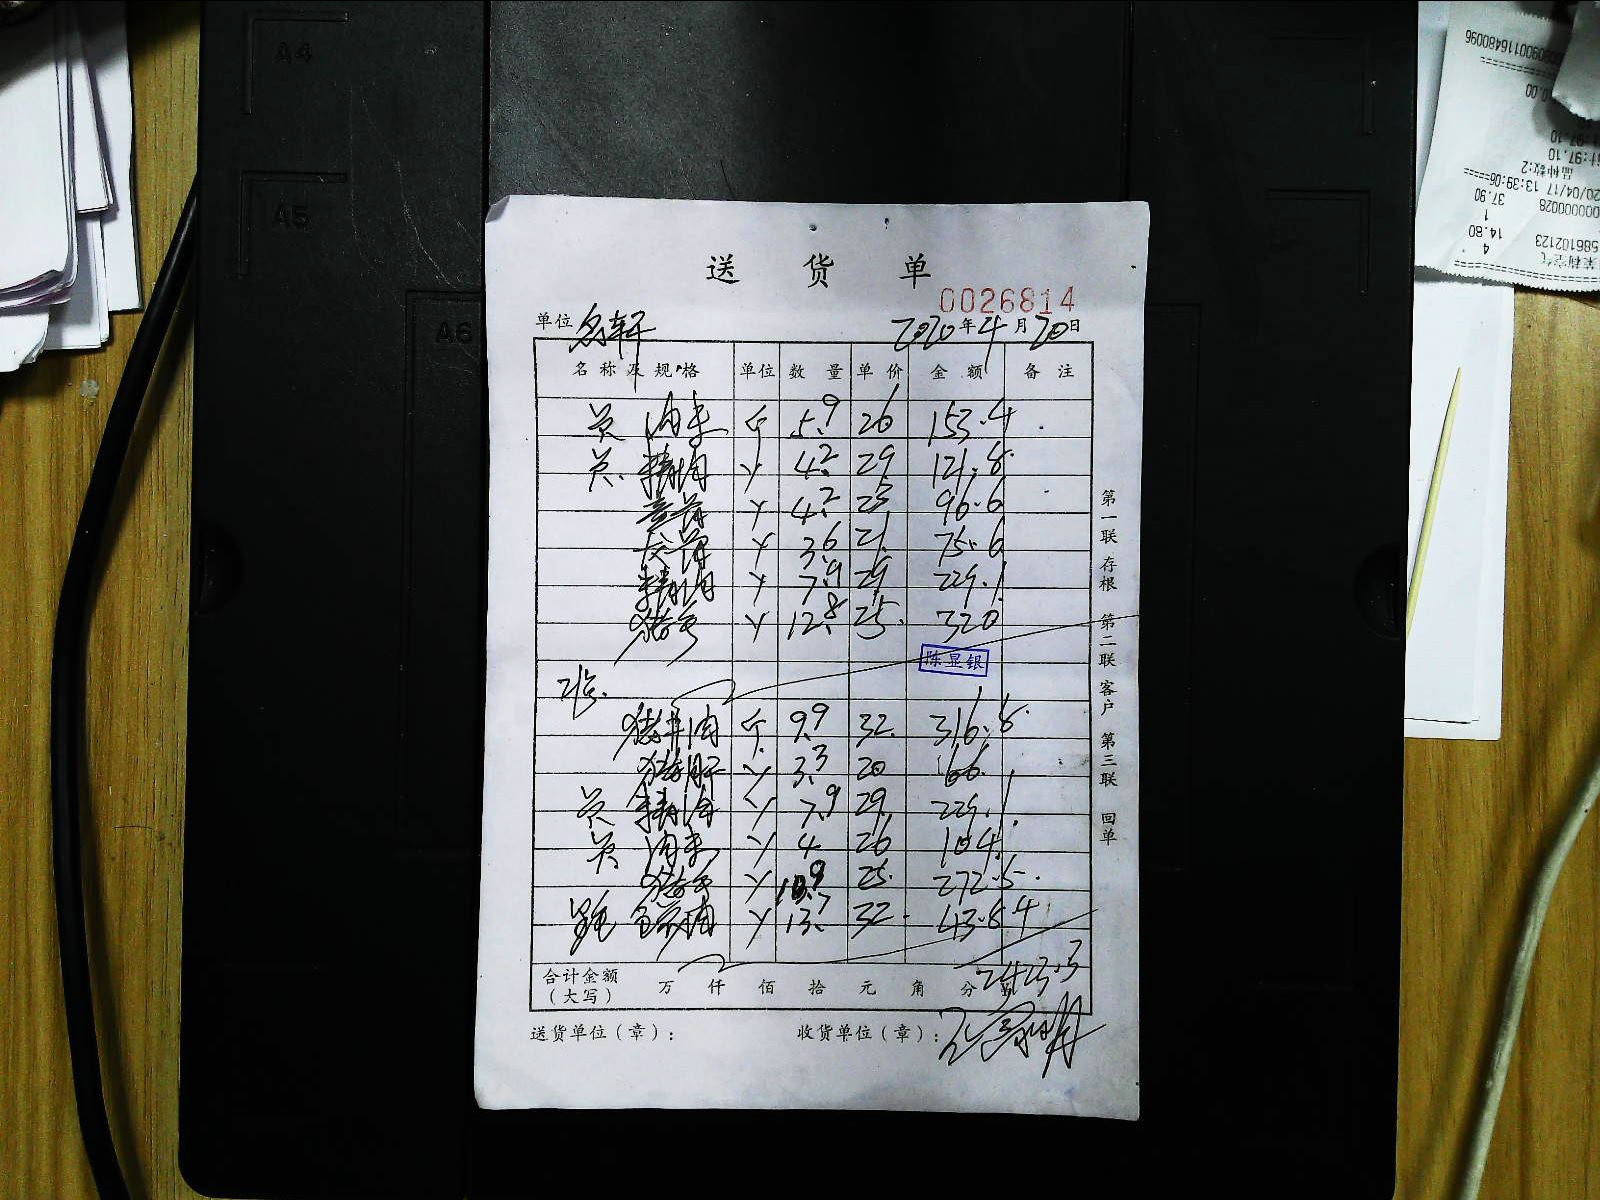 A4
A5
A6
送货单
0026814
单位 名轩 2020年4月20日
名称及规格 单位 数量 单价 金额 备注
员 肉末 斤 5.9 26 153.4
员 精肉 4.2 29 121.8
4.2 23 96.6
3.6 21 75.6
精肉 7.9 29 229.1
猪手 12.8 25 320
陈显银
斤 9.9 32 316.8
猪肝 3.3 20 66
员 精肉 7.9 29 229.1
员 肉末 4 26 104
猪手 10.9 25 272.5
13.7 32 438.4
合计金额（大写） 万 仟 佰 拾 元 角 分 2423.3
送货单位（章）： 收货单位（章）：
第一联 存根 第二联 客户 第三联 回单
0.00
计:97.10
品种数:2
20/04/17 13:39:06
37.90
1
14.80
4
586102123